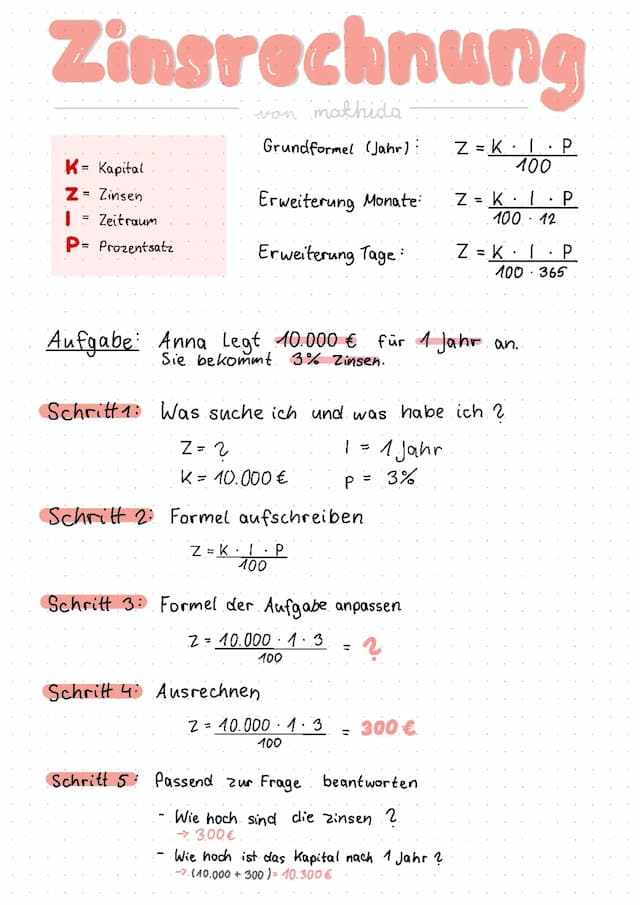 Zinsrechnung
von mathida
K = Kapital
Z = Zinsen
I = Zeitraum
P = Prozentsatz
Grundformel (Jahr): Z = K · I · P / 100
Erweiterung Monate: Z = K · I · P / 100 · 12
Erweiterung Tage: Z = K · I · P / 100 · 365
Aufgabe: Anna legt 10.000 € für 1 Jahr an.
Sie bekommt 3% Zinsen.
Schritt 1: Was suche ich und was habe ich?
Z = ? I = 1 Jahr
K = 10.000 € p = 3%
Schritt 2: Formel aufschreiben
Z = K · I · P / 100
Schritt 3: Formel der Aufgabe anpassen
Z = 10.000 · 1 · 3 / 100 = ?
Schritt 4: Ausrechnen
Z = 10.000 · 1 · 3 / 100 = 300 €
Schritt 5: Passend zur Frage beantworten
- Wie hoch sind die zinsen?
→ 300 €
- Wie hoch ist das Kapital nach 1 Jahr?
→ (10.000 + 300) = 10.300 €